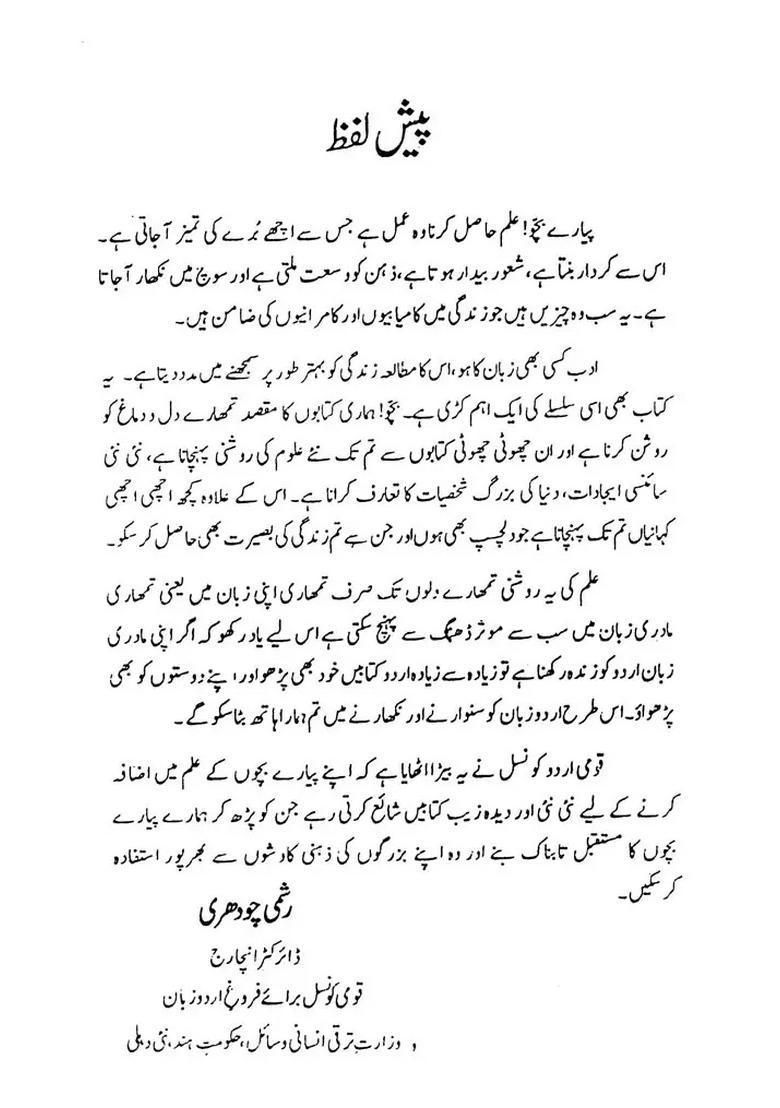 پیش لفظ
پیارے بچّو! علم حاصل کرنا وہ عمل ہے جس سے اچھے بُرے کی تمیز آجاتی ہے۔
اس سے کردار بنتا ہے، شعور بیدار ہوتا ہے، ذہن کو وسعت ملتی ہے اور سوچ میں نکھار آجاتا
ہے۔ یہ سب وہ چیزیں ہیں جو زندگی میں کامیابیوں اور کامرانیوں کی ضامن ہیں۔
ادب کسی بھی زبان کا ہو، اس کا مطالعہ زندگی کو بہتر طور پر سمجھنے میں مدد دیتا ہے۔ یہ
کتاب بھی اسی سلسلے کی ایک اہم کڑی ہے۔ بچّو! ہماری کتابوں کا مقصد تمھارے دل و دماغ کو
روشن کرنا ہے اور ان چھوٹی چھوٹی کتابوں سے تم تک نئے علوم کی روشنی پہنچانا ہے، نئی نئی
سائنسی ایجادات، دنیا کی بزرگ شخصیات کا تعارف کرانا ہے۔ اس کے علاوہ کچھ اچھی اچھی
کہانیاں تم تک پہنچانا ہے جو دلچسپ بھی ہوں اور جن سے تم زندگی کی بصیرت بھی حاصل کر سکو۔
علم کی یہ روشنی تمھارے دلوں تک صرف تمھاری اپنی زبان میں یعنی تمھاری
مادری زبان میں سب سے موثر ڈھنگ سے پہنچ سکتی ہے اس لیے یاد رکھو کہ اگر اپنی مادری
زبان اردو کو زندہ رکھنا ہے تو زیادہ سے زیادہ اردو کتابیں خود بھی پڑھو اور اپنے دوستوں کو بھی
پڑھواؤ۔ اس طرح اردو زبان کو سنوارنے اور نکھارنے میں تم ہمارا ہاتھ بٹا سکو گے۔
قومی اردو کونسل نے یہ بیڑا اٹھایا ہے کہ اپنے پیارے بچوں کے علم میں اضافہ
کرنے کے لیے نئی نئی اور دیدہ زیب کتابیں شائع کرتی رہے جن کو پڑھ کر ہمارے پیارے
بچوں کا مستقبل تابناک بنے اور وہ اپنے بزرگوں کی ذہنی کاوشوں سے بھرپور استفادہ
کر سکیں۔
رشمی چودھری
ڈائرکٹر انچارج
قومی کونسل برائے فروغ اردو زبان
وزارتِ ترقی انسانی وسائل، حکومتِ ہند، نئی دہلی